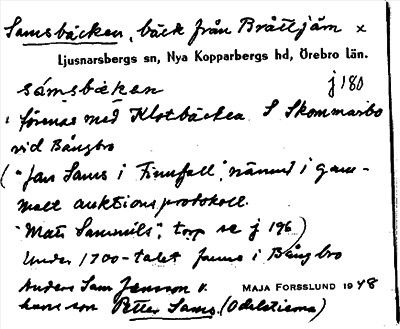 Samsbäcken, bäck från Bråttjärn x
Ljusnarsbergs sn, Nya Kopparbergs hd, Örebro län.
sámsbäcken j 180
förenas med Klotbäcken S Skommarbo
vid Bångbro
("Jan Sams i Finnfall", nämnd i gam-
malt auktionsprotokoll.
"Mats Sammils", torp se j 196)
Under 1700-talet fanns i Bångbro
Anders Sam Jansson o.
hans son Petter Sams. (Odelstierna)
MAJA FORSSLUND 1948